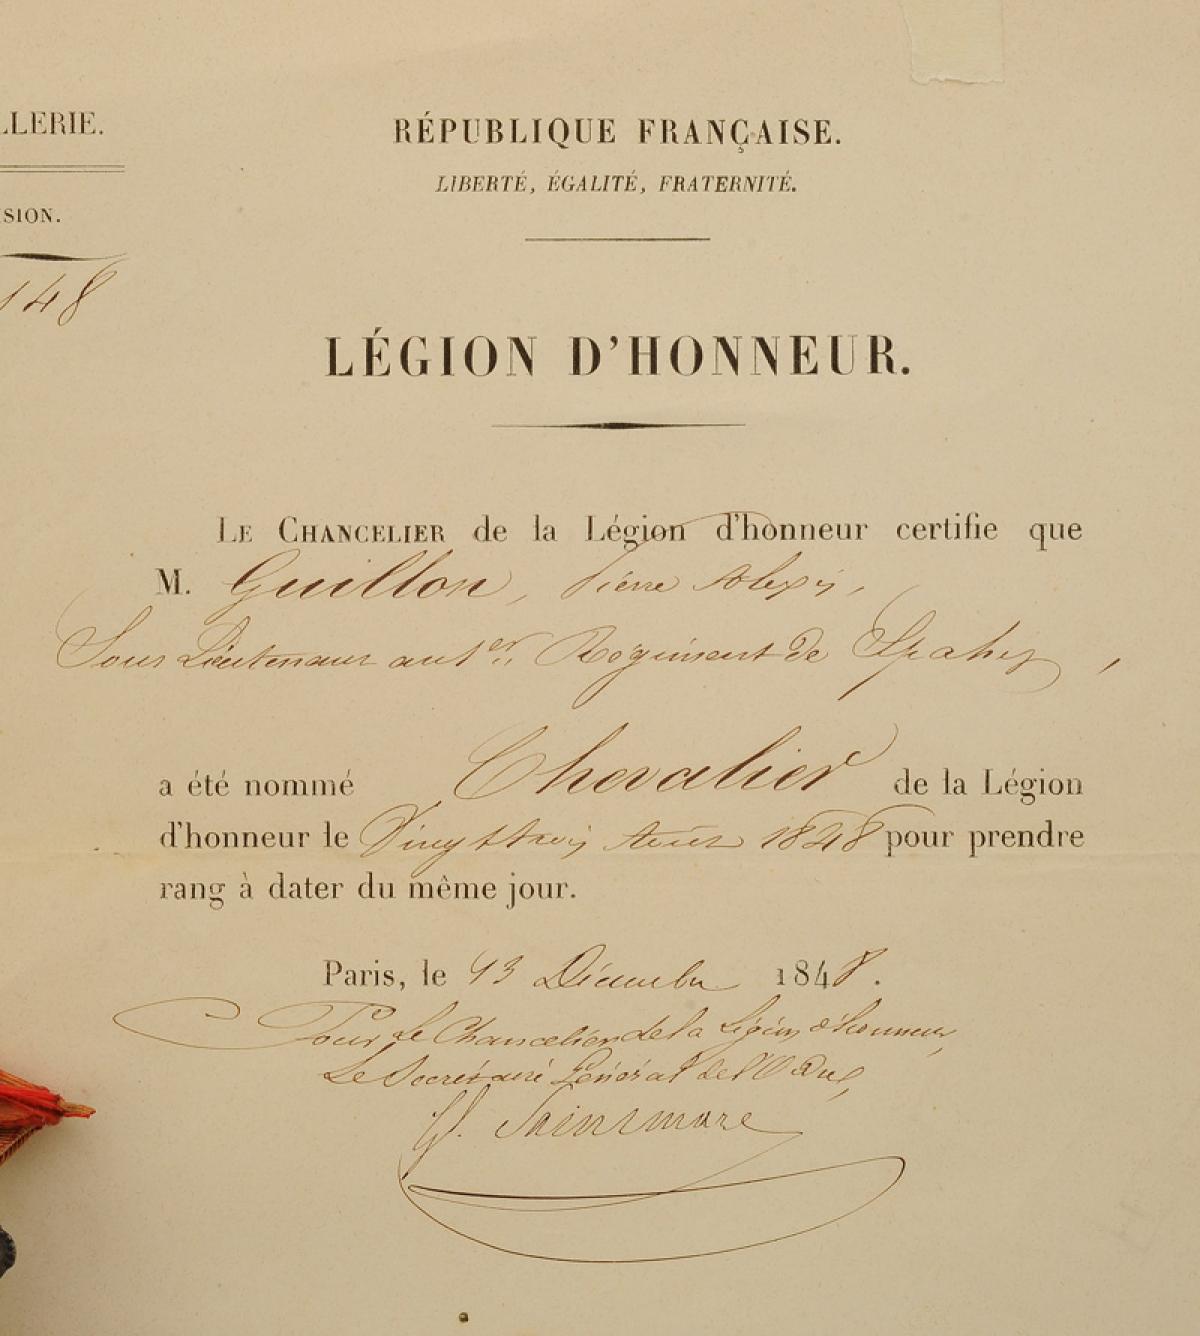 LLERIE.
SION.
148
RÉPUBLIQUE FRANÇAISE.
LIBERTÉ, ÉGALITÉ, FRATERNITÉ.
LÉGION D'HONNEUR.
LE CHANCELIER de la Légion d'honneur certifie que
M. Guillon, Pierre Alexis,
Sous Lieutenant au 1er Régiment de Spahis,
a été nommé Chevalier de la Légion
d'honneur le Vingt trois Août 1848 pour prendre
rang à dater du même jour.
Paris, le 13 Décembre 1848.
Pour Le Chancelier de la Légion d'honneur,
Le Secrétaire Général de l'Ordre,
Saintmare